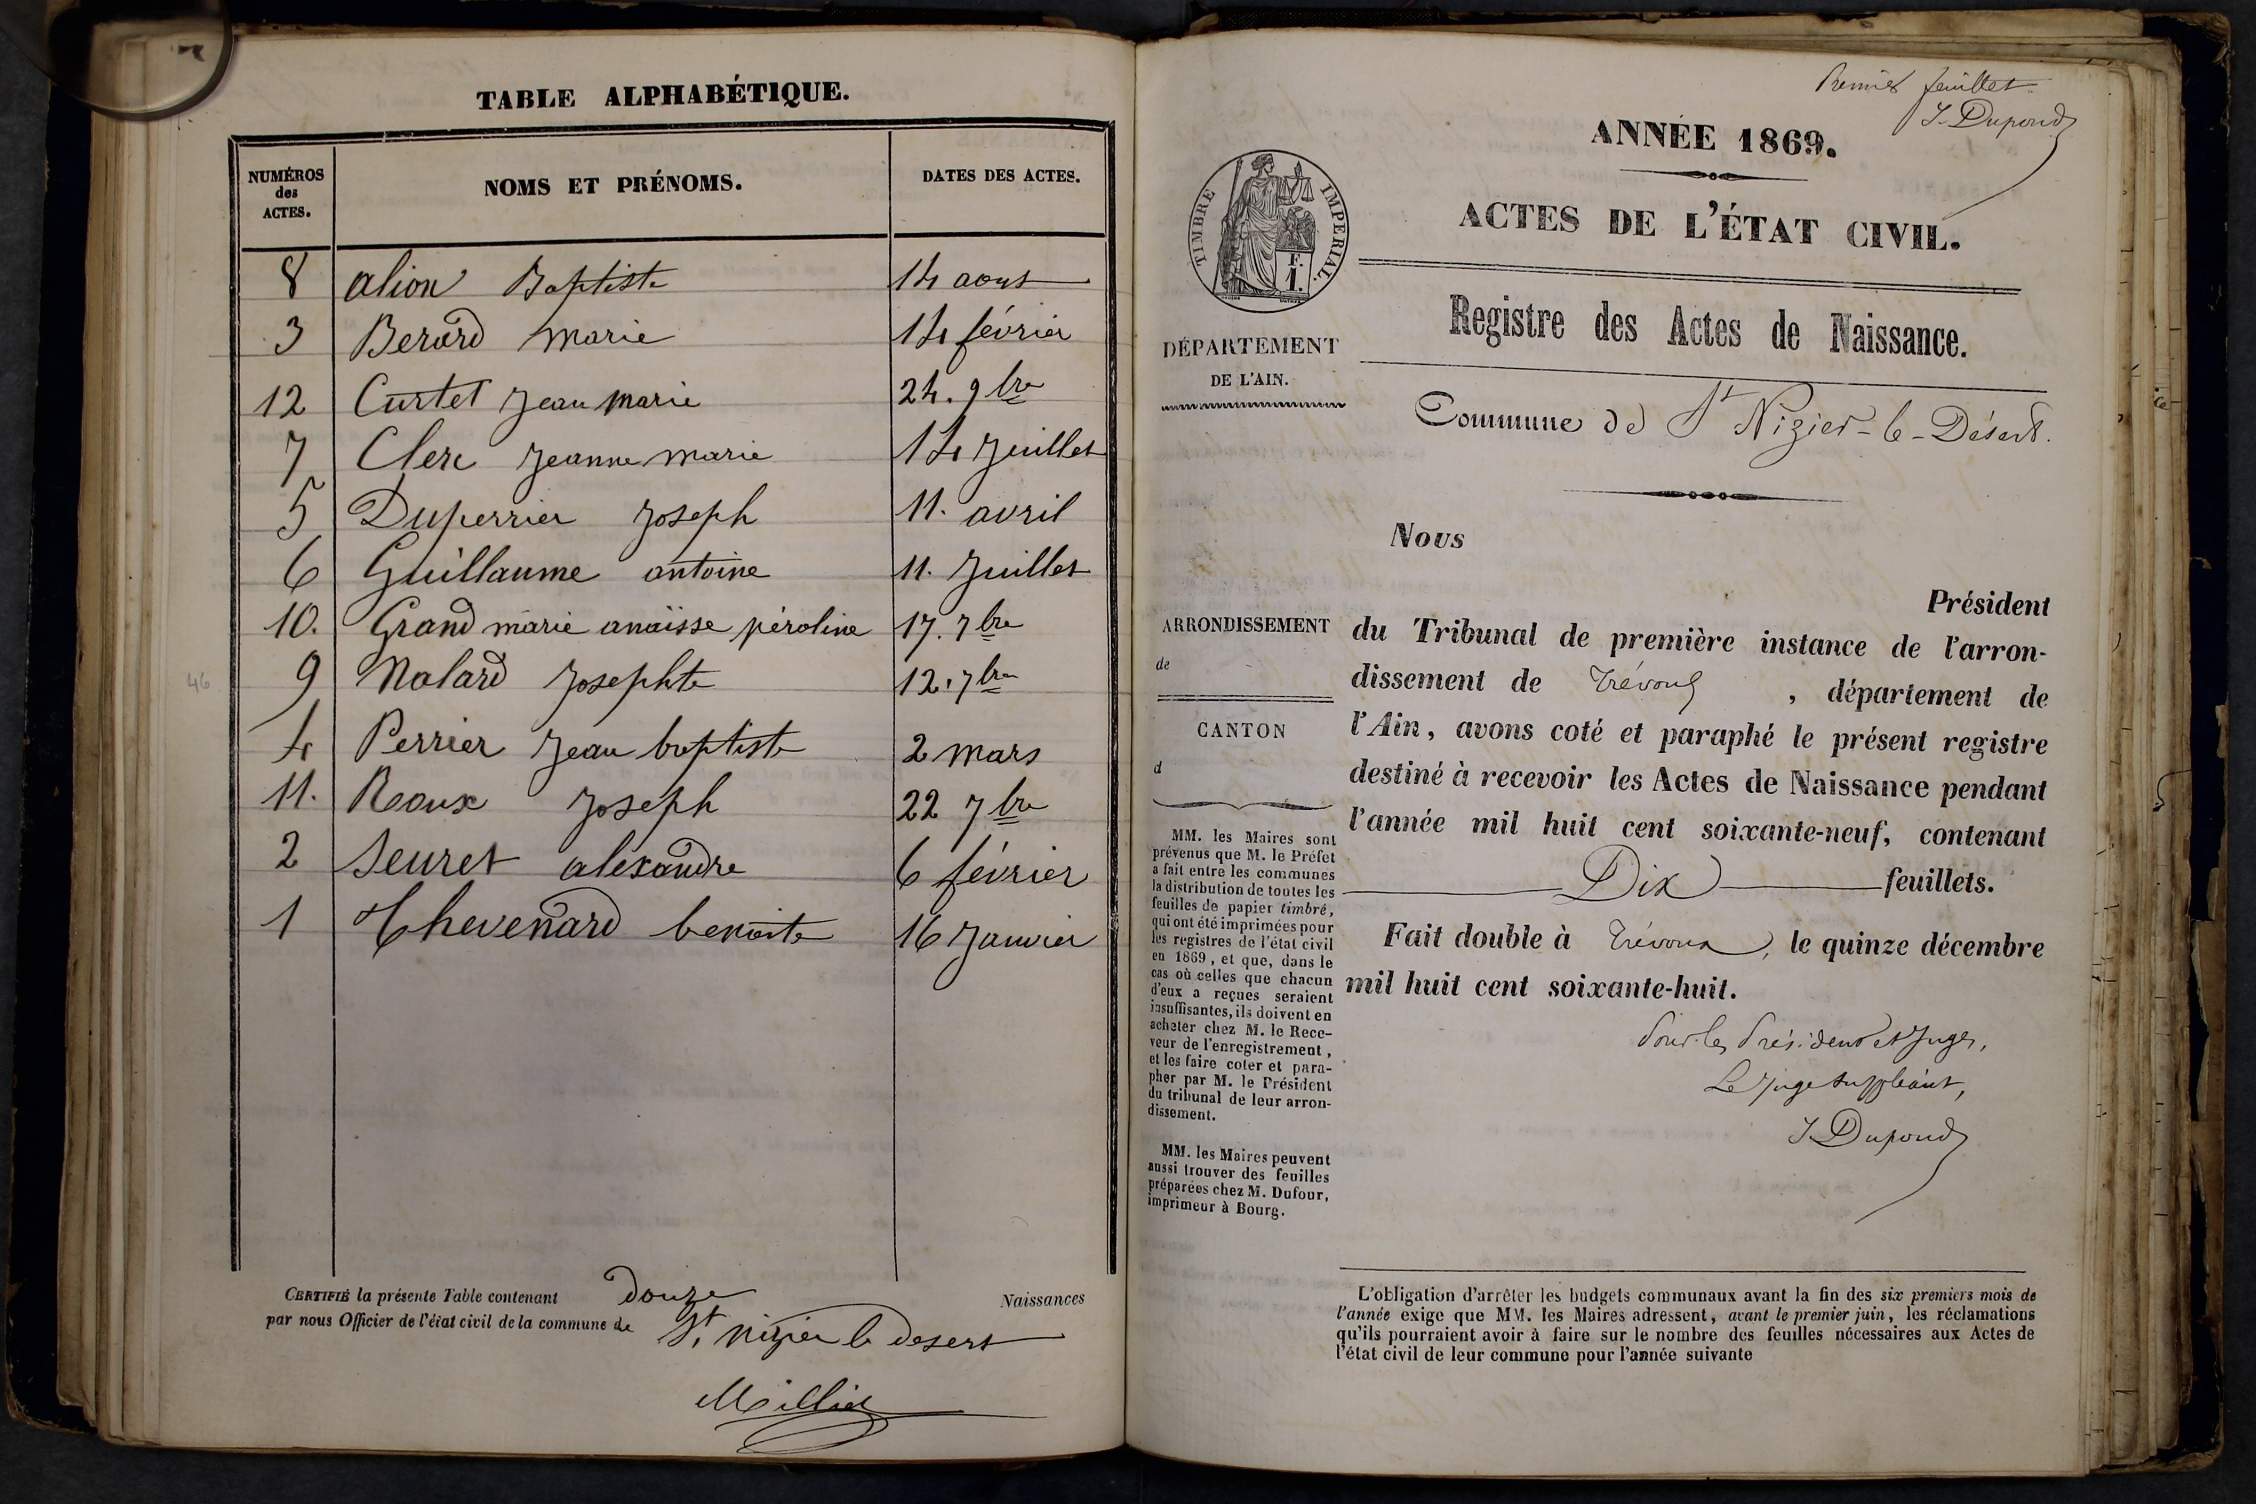 TABLE ALPHABÉTIQUE.
NUMÉROS des ACTES. NOMS ET PRÉNOMS. DATES DES ACTES.
8 alion Baptiste 14 aous
3 Berard marie 14 février
12 Curtet Jean marie 24. 9bre
7 Clerc Jeanne marie 14 Juillet
5 Duperrier Joseph 11. avril
6 Guillaume antoine 11. Juillet
10. Grand marie anaïsse péroline 17. 7bre
9 Nalard Josephte 12. 7bre
4 Perrier Jean baptiste 2 mars
11. Roux Joseph 22 7bre
2 Seuret alexandre 6 février
1 Thevenard benoite 16 Janvier
46
CERTIFIÉ la présente Table contenant douze Naissances
par nous Officier de l'état civil de la commune de St nizier le desert
Premier feuillet
J. Dupond
ANNÉE 1869.
ACTES DE L'ÉTAT CIVIL.
TIMBRE IMPERIAL.
F.
1.
Registre des Actes de Naissance.
DÉPARTEMENT
DE L'AIN.
Commune de St Nizier-le-Désert.
Nous
Président
ARRONDISSEMENT
de
CANTON
d
du Tribunal de première instance de l'arron-
dissement de Trévoux, département de
l'Ain, avons coté et paraphé le présent registre
destiné à recevoir les Actes de Naissance pendant
l'année mil huit cent soixante-neuf, contenant
Dix feuillets.
Fait double à Trévoux, le quinze décembre
mil huit cent soixante-huit.
Pour les Président et Juges,
Le Juge suppléant,
J. Dupond
MM. les Maires sont
prévenus que M. le Préfet
a fait entre les communes
la distribution de toutes les
feuilles de papier timbré,
qui ont été imprimées pour
les registres de l'état civil
en 1869, et que, dans le
cas où celles que chacun
d'eux a reçues seraient
insuffisantes, ils doivent en
acheter chez M. le Rece-
veur de l'enregistrement,
et les faire coter et para-
pher par M. le Président
du tribunal de leur arron-
dissement.
MM. les Maires peuvent
aussi trouver des feuilles
préparées chez M. Dufour,
imprimeur à Bourg.
L'obligation d'arrêter les budgets communaux avant la fin des six premiers mois de
l'année exige que MM. les Maires adressent, avant le premier juin, les réclamations
qu'ils pourraient avoir à faire sur le nombre des feuilles nécessaires aux Actes de
l'état civil de leur commune pour l'année suivante